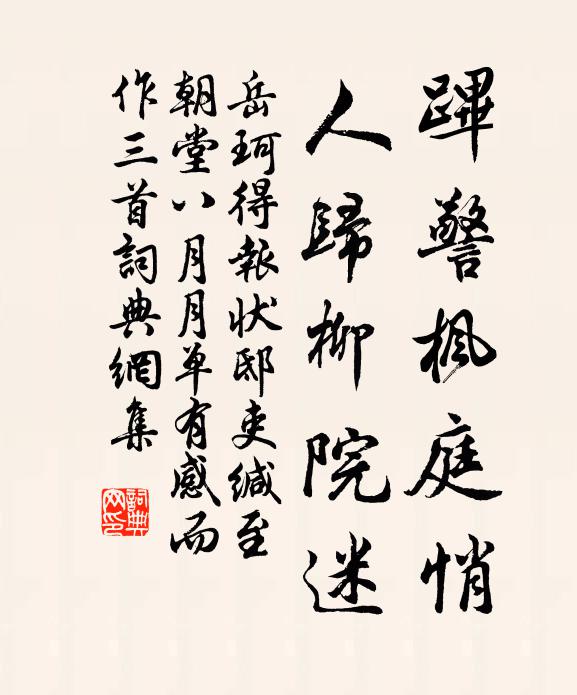 蹕警楓庭悄
人歸柳院迷
岳珂得報狀邸吏緘至
朝堂八月月单有感而
作三首詞典網集
詞典网印